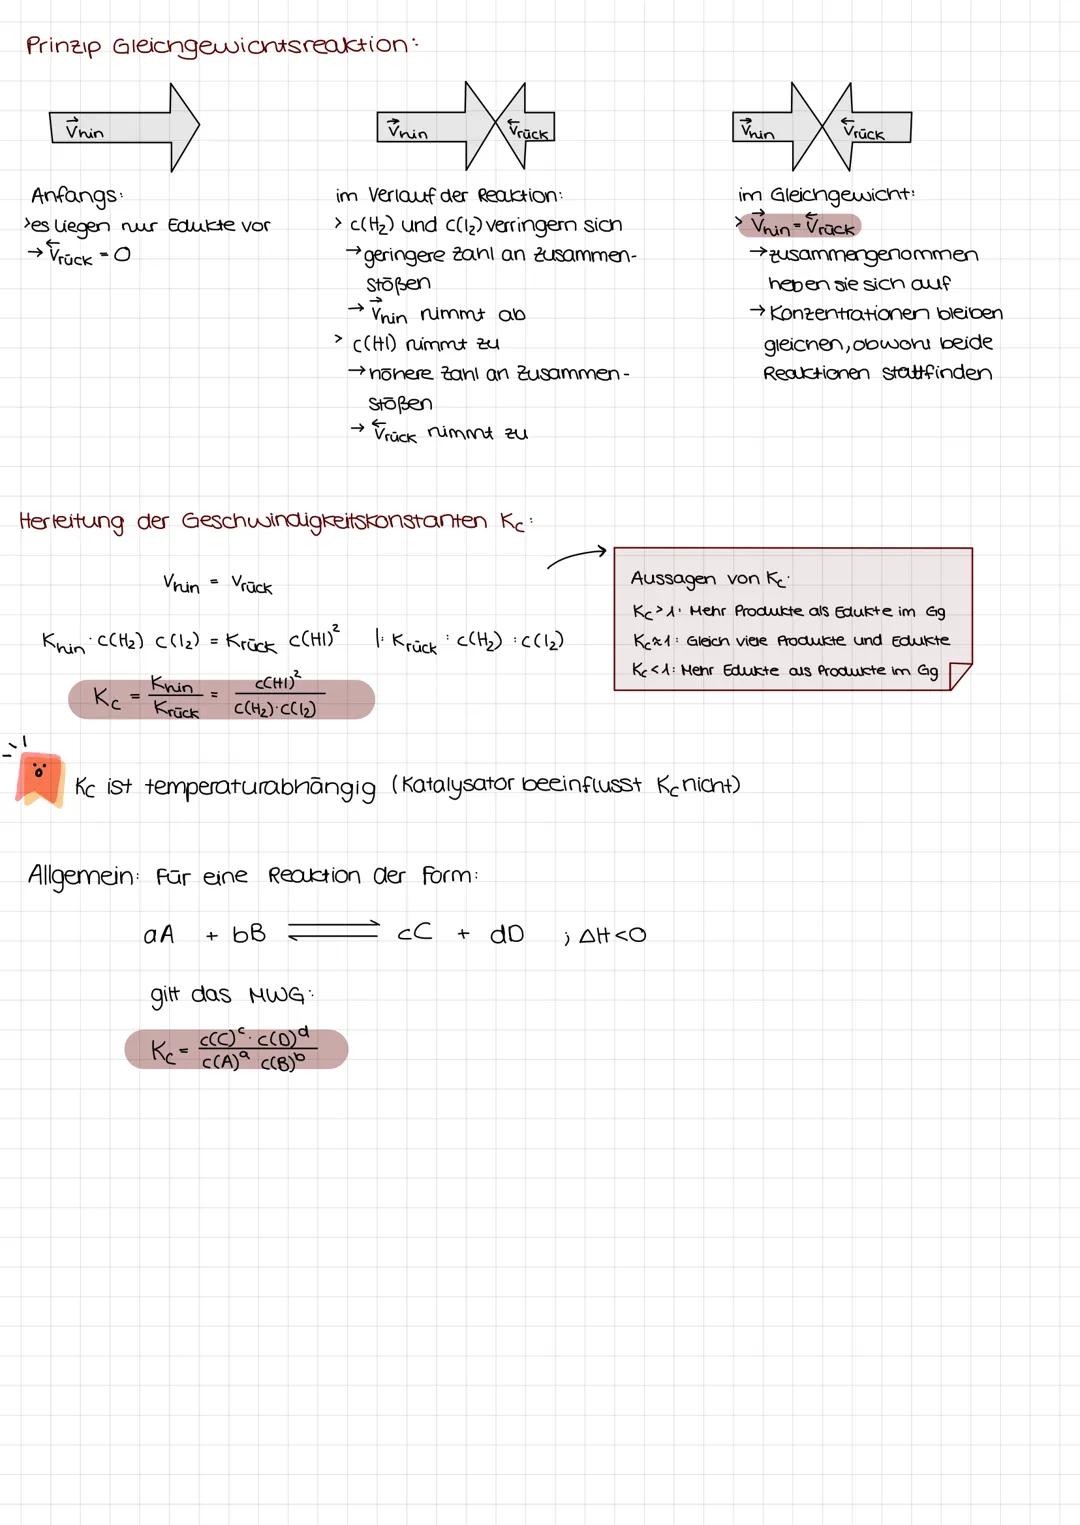 Prinzip Gleichgewichtsreaktion:
v⃗hin
v⃗hin
v⃖rück
v⃗hin
v⃖rück
Anfangs:
>es liegen nur Edukte vor
→ v⃖rück = 0
im Verlauf der Reaktion:
> c(H₂) und c(I₂) verringern sich
→ geringere Zahl an Zusammen-
stößen
→ v⃗hin nimmt ab
> c(HI) nimmt zu
→ höhere Zahl an Zusammen-
stößen
→ v⃖rück nimmt zu
im Gleichgewicht:
> v⃗hin = v⃖rück
→ zusammengenommen
heben sie sich auf
→ Konzentrationen bleiben
gleichen, obwohl beide
Reaktionen stattfinden
Herleitung der Geschwindigkeitskonstanten Kc:
Vhin = Vrück
Khin · c(H₂) c(I₂) = Krück c(HI)² |: Krück : c(H₂) : c(I₂)
Kc = Khin/Krück = c(HI)²/c(H₂)·c(I₂)
Aussagen von Kc:
Kc > 1: Mehr Produkte als Edukte im Gg
Kc ≈ 1: Gleich viele Produkte und Edukte
Kc < 1: Mehr Edukte als Produkte im Gg
Kc ist temperaturabhängig (Katalysator beeinflusst Kc nicht)
Allgemein: Für eine Reaktion der Form:
aA + bB ⇌ cC + dD ; ΔH<0
gilt das MWG:
Kc = c(C)ᶜ · c(D)ᵈ / c(A)ᵃ c(B)ᵇ